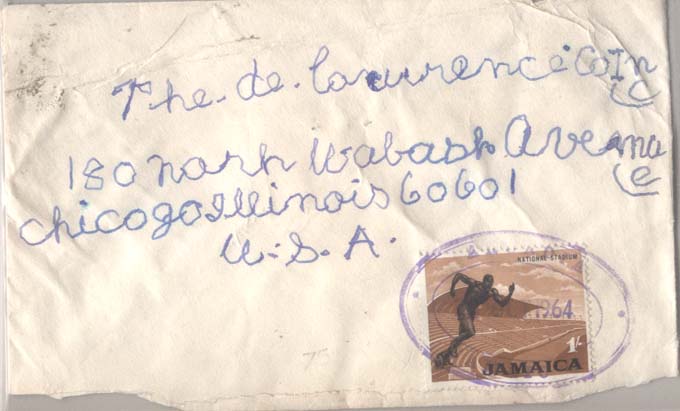 The. de. Lawrence Co In
c
180 north Wabash Avenu
e
Chicogo Illinois 60601
U. S. A.
NATIONAL-STADIUM
1964
1/-
JAMAICA